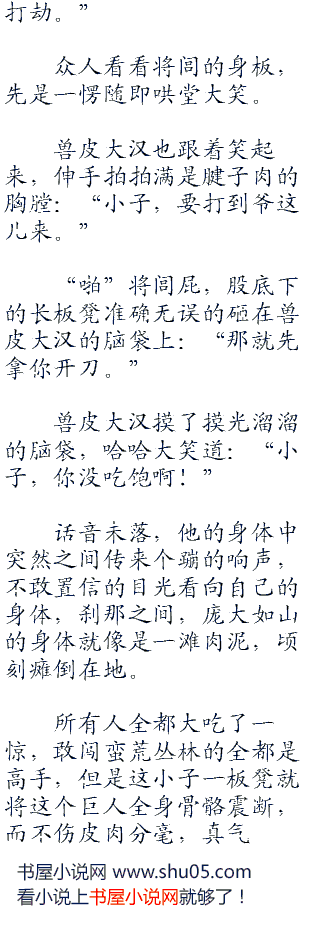 打劫。”
众人看看将闾的身板，
先是一愣随即哄堂大笑。
兽皮大汉也跟着笑起
来，伸手拍拍满是腱子肉的
胸膛：“小子，要打到爷这
儿来。”
“啪”将闾屁，股底下
的长板凳准确无误的砸在兽
皮大汉的脑袋上：“那就先
拿你开刀。”
兽皮大汉摸了摸光溜溜
的脑袋，哈哈大笑道：“小
子，你没吃饱啊！”
话音未落，他的身体中
突然之间传来个蹦的响声，
不敢置信的目光看向自己的
身体，刹那之间，庞大如山
的身体就像是一滩肉泥，顷
刻瘫倒在地。
所有人全都大吃了一
惊，敢闯蛮荒丛林的全都是
高手，但是这小子一板凳就
将这个巨人全身骨骼震断，
而不伤皮肉分毫，真气
书屋小说网 www.shu05.com
看小说上书屋小说网就够了！